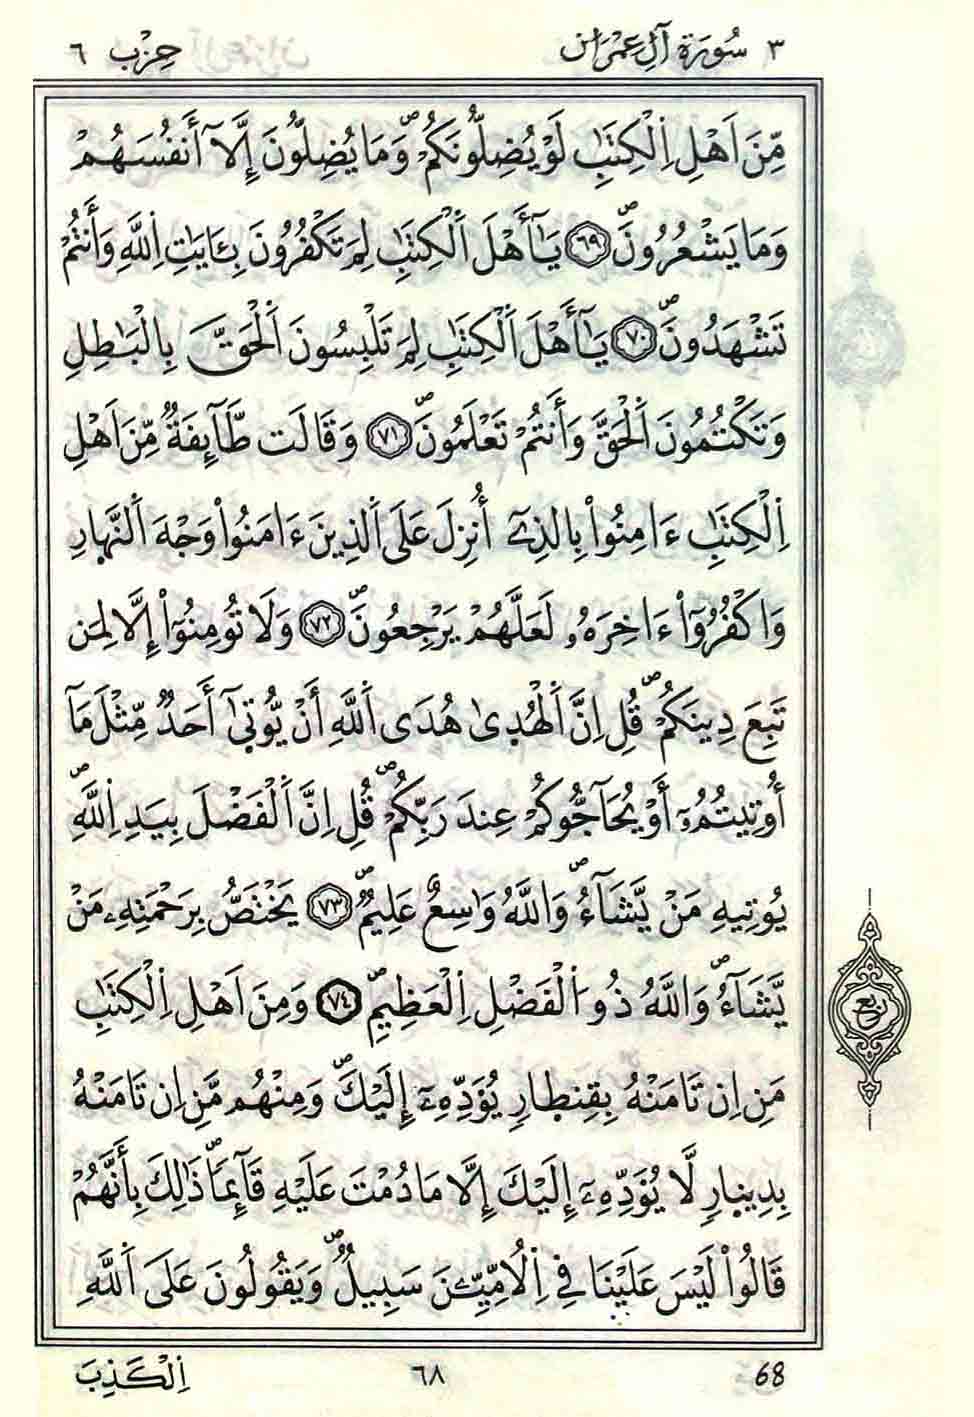 ٣ سُورَةُ آلِ عِمْرَان حِزْب ٦
مِّنَ اَهْلِ اِ۬لْكِتَٰبِ لَوْ يُضِلُّونَكُمْۖ وَمَا يُضِلُّونَ إِلَّآ أَنفُسَهُمْ
وَمَا يَشْعُرُونَۖ ۝٦٩ يَٰٓأَهْلَ اَ۬لْكِتَٰبِ لِمَ تَكْفُرُونَ بِـَٔايَٰتِ اِ۬للَّهِ وَأَنتُمْ
تَشْهَدُونَۖ ۝٧٠ يَٰٓأَهْلَ اَ۬لْكِتَٰبِ لِمَ تَلْبِسُونَ اَ۬لْحَقَّ بِالْبَٰطِلِ
وَتَكْتُمُونَ اَ۬لْحَقَّ وَأَنتُمْ تَعْلَمُونَۖ ۝٧١ وَقَالَت طَّآئِفَةٞ مِّنَ اَهْلِ
اِ۬لْكِتَٰبِ ءَامِنُواْ بِالذِےٓ أُنزِلَ عَلَى اَ۬لذِينَ ءَامَنُواْ وَجْهَ اَ۬لنَّهارِ
وَاكْفُرُوٓاْ ءَاخِرَهُۥ لَعَلَّهُمْ يَرْجِعُونَۖ ۝٧٢ وَلَا تُومِنُوٓاْ إِلَّا لِمَن
تَبِعَ دِينَكُمْۖ قُلِ اِنَّ اَ۬لْهُد۪ىٰ هُدَى اَ۬للَّهِ أَنْ يُّوت۪ىٰٓ أَحَدٞ مِّثْلَ مَآ
أُوتِيتُمُۥٓ أَوْ يُحَآجُّوكُمْ عِندَ رَبِّكُمْۖ قُلِ اِنَّ اَ۬لْفَضْلَ بِيَدِ اِ۬للَّهِۖ
يُوتِيهِ مَنْ يَّشَآءُۖ وَاللَّهُ وَٰسِعٌ عَلِيمٞۖ ۝٧٣ يَخْتَصُّ بِرَحْمَتِهِۦ مَنْ
يَّشَآءُۖ وَاللَّهُ ذُو اُ۬لْفَضْلِ اِ۬لْعَظِيمِۖ ۝٧٤ وَمِنَ اَهْلِ اِ۬لْكِتَٰبِ
مَنِ اِن تَامَنْهُ بِقِنط۪ارٖ يُؤَدِّهِۦٓ إِلَيْكَۖ وَمِنْهُم مَّنِ اِن تَامَنْهُ
بِدِين۪ارٖ لَّا يُؤَدِّهِۦٓ إِلَيْكَ إِلَّا مَا دُمْتَ عَلَيْهِ قَآئِماٗۖ ذَٰلِكَ بِأَنَّهُمْ
قَالُواْ لَيْسَ عَلَيْنَا فِي اِ۬لُامِّيِّـۧنَ سَبِيلٞۖ وَيَقُولُونَ عَلَى اَ۬للَّهِ
ربع
اِ۬لْكَذِبَ ٦٨ 68